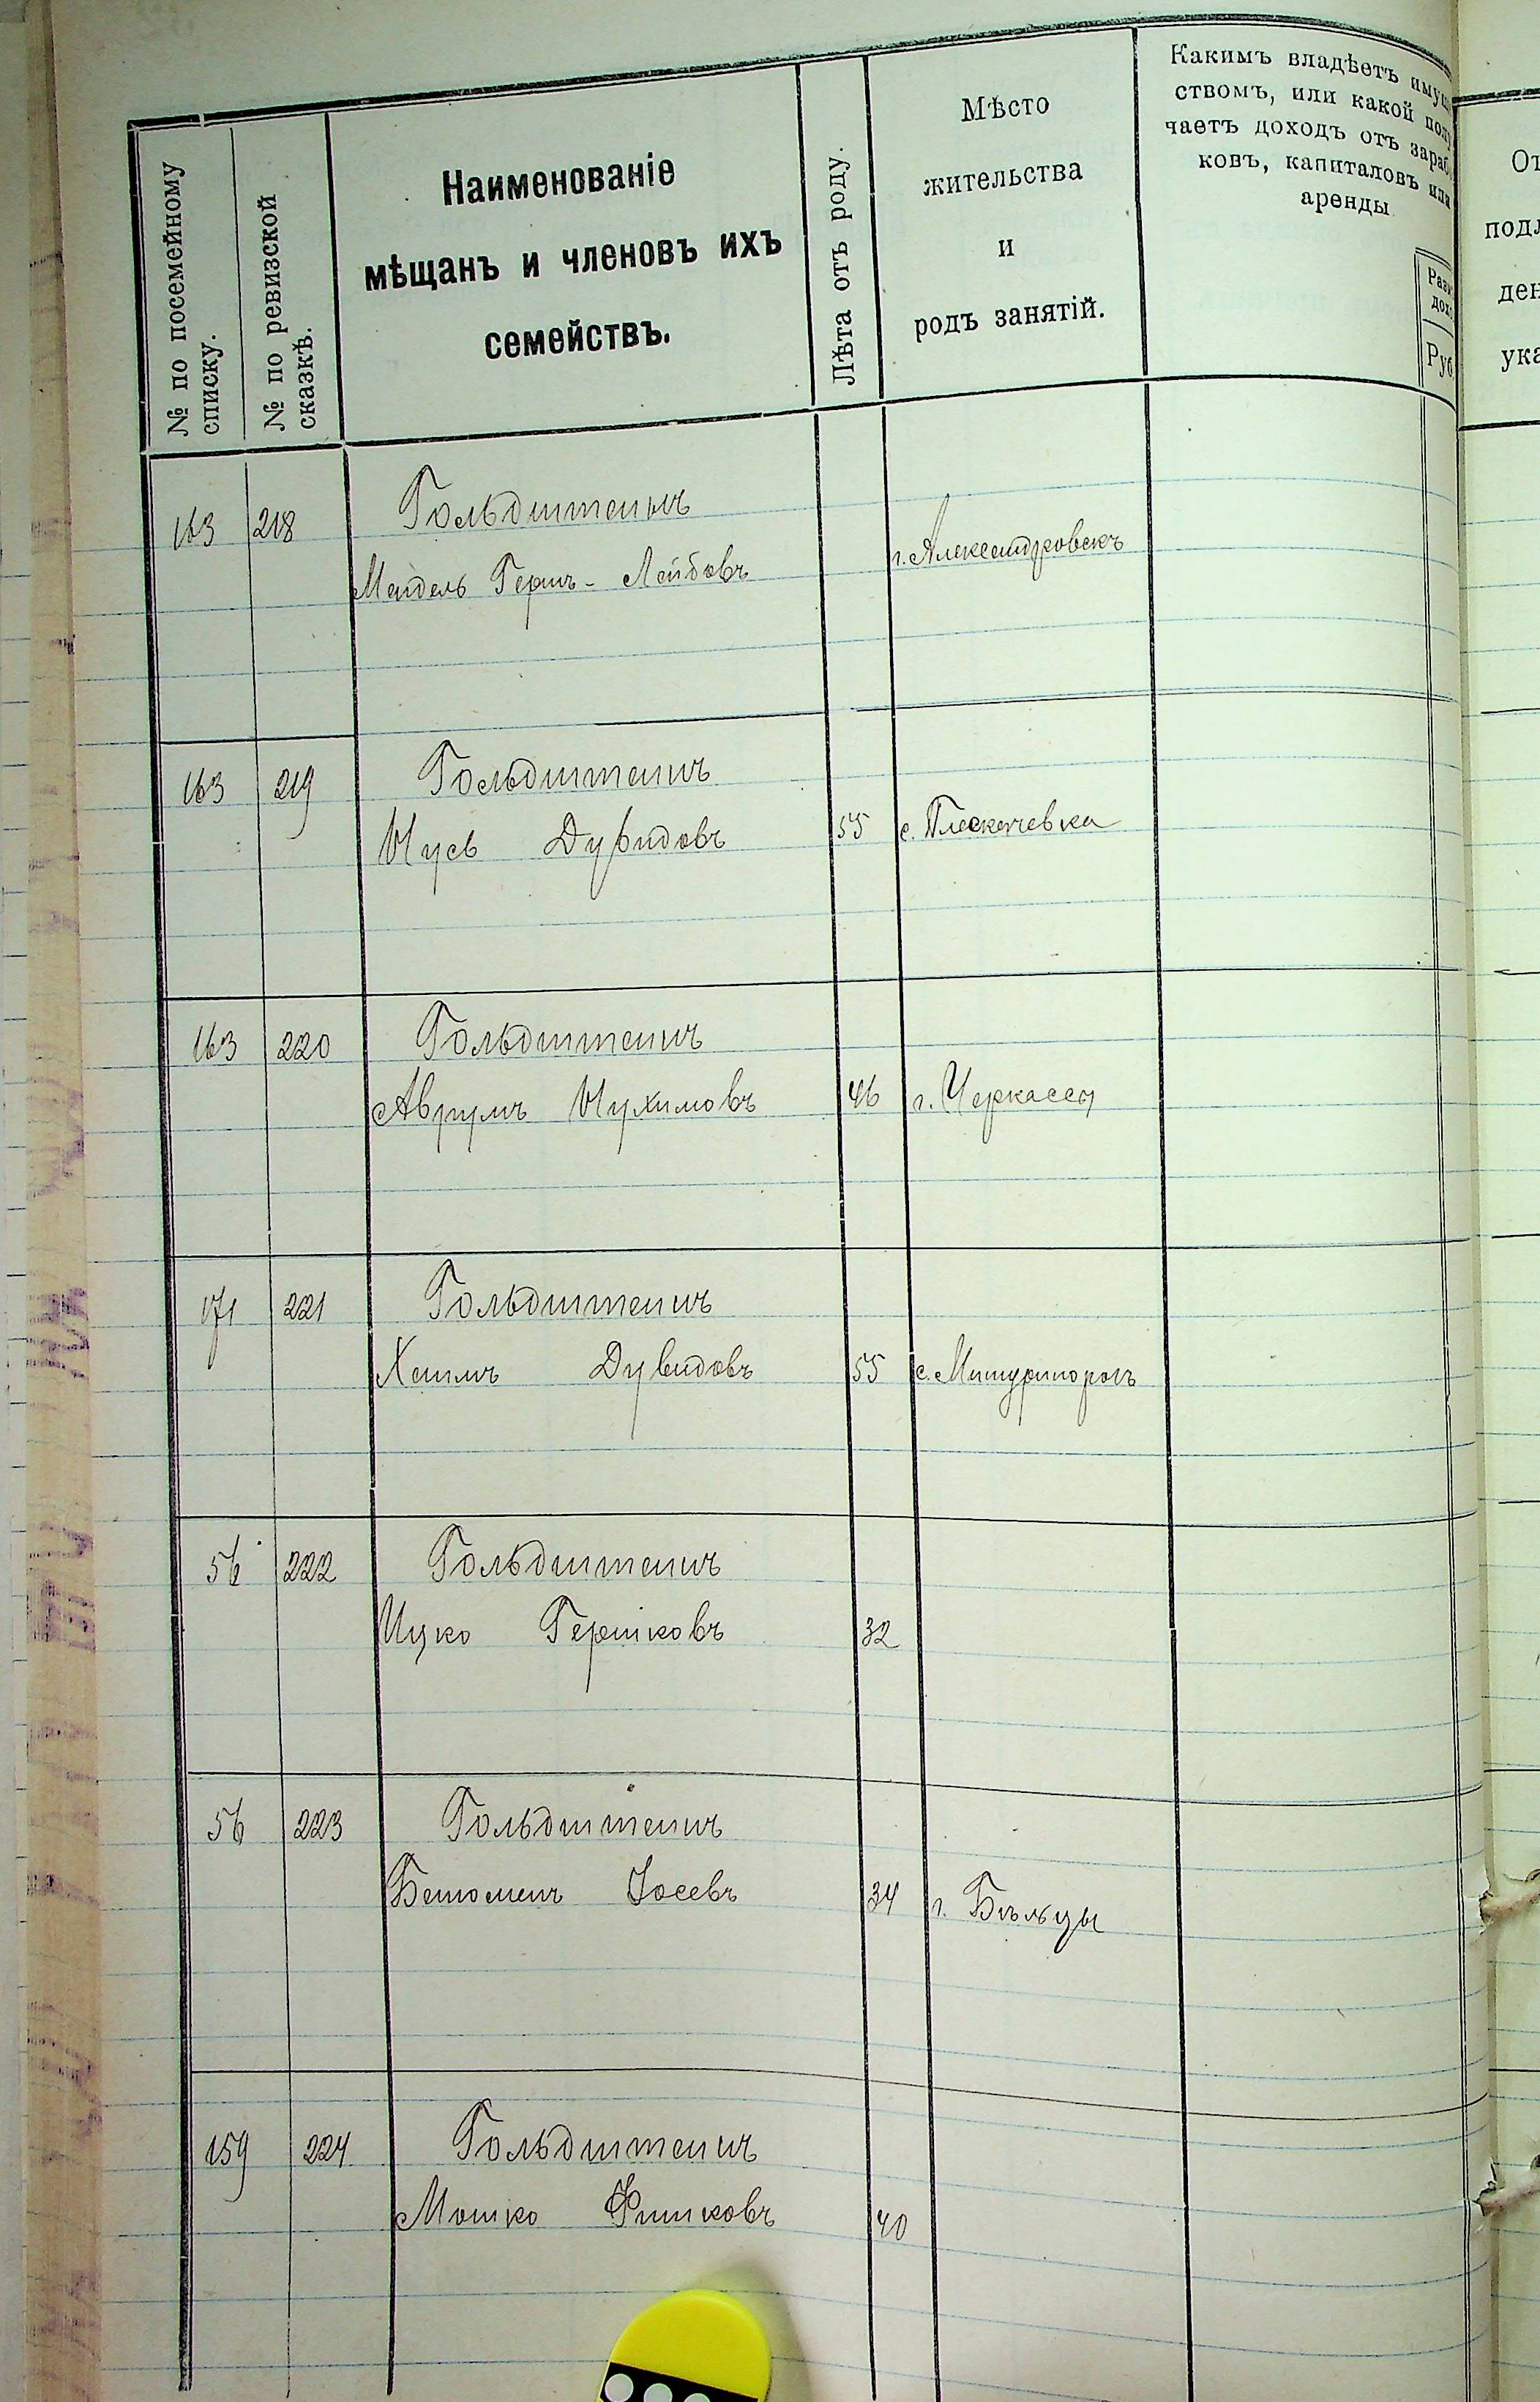 № по посемейному
списку.
№ по ревизской
сказкѣ.
Наименованіе
мѣщанъ и членовъ ихъ
семействъ.
Лѣта отъ роду.
Мѣсто
жительства
и
родъ занятій.
Какимъ владѣетъ имущ
ствомъ, или какой полу
чаетъ доходъ отъ зараб
ковъ, капиталовъ или
аренды
Руб
163 218 Гольдштейнъ
Мендель Герш-Лейбовъ г. Александровскъ
163 219 Гольдштеинъ
Нусь Дувидовъ 55 с. Плескачевка
163 220 Гольдштеинъ
Аврумъ Нухимовъ 46 г. Черкассы
171 221 Гольдштеинъ
Хаимъ Дувидовъ 55 с. Мишуринорогъ
56 222 Гольдштеинъ
Ицко Гершковъ 32
56 223 Гольдштеинъ
Іосевъ 34 г. Бѣльцы
159 224 Гольдштеинъ
Мошко Фишковъ 40
От
подл
ден
ука